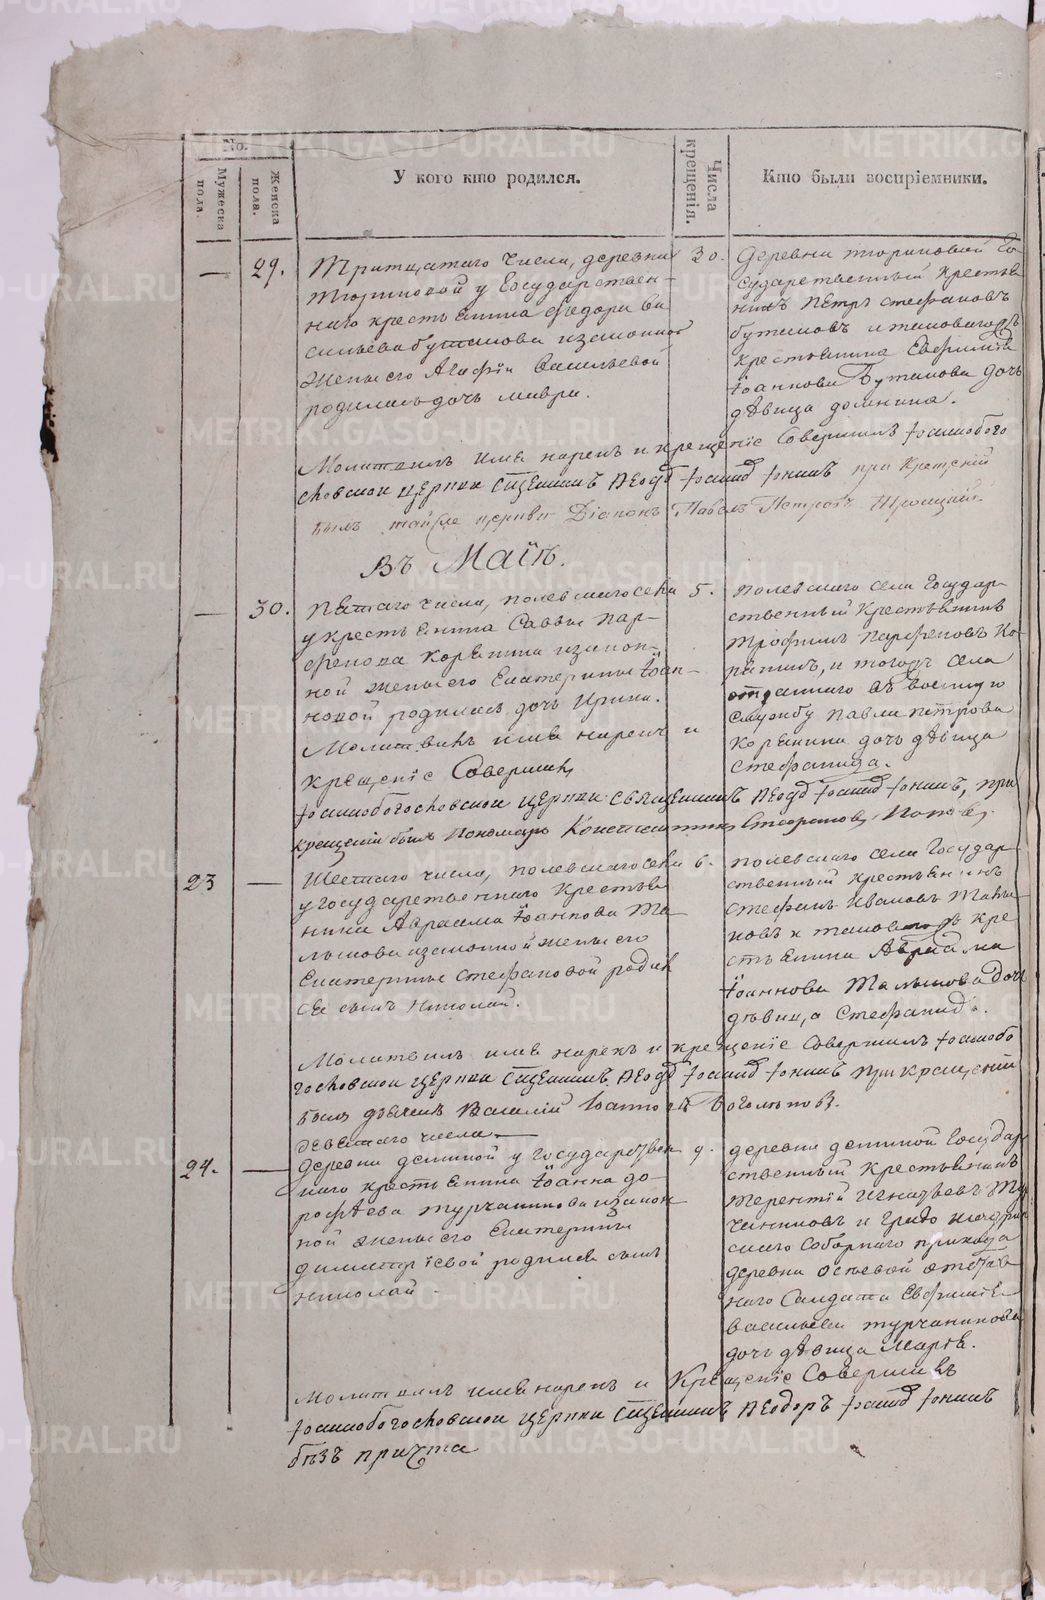 No.
Мужеска пола.
Женска пола.
У кого кто родился.
Числа крещенія.
Кто были воспріемники.
29.
Тритцатаго числа, деревни
Тюриковой у Государствен-
наго крестьянина Федора Ва
сильева Бутакова и законной
жены его Агафіи Васильевой
родилась дочь Мавра.
30.
Деревни Тюриковой Го-
сударственный крестья
нинъ Петръ Стефановъ
Бутаковъ и таковагожъ
крестьянина Евфимія
Іоаннова Бутакова дочь
дѣвица Домника.
Молитвилъ имя нарекъ и крещеніе Совершилъ Іоаннобого
словской церкви Сщенникъ Ѳеодр при Крещеніи
былъ тойже церкви Діаконъ Павелъ Петровъ Троицкій.
Въ Маіѣ.
30.
Пятаго числа, Полевскаго села
у крестьянина Саввы Пар-
фенова Корякина и закон-
ной жены его Екатерины Іоан-
новой родилась дочь Ирина.
Молитвилъ имя нарекъ и
крещеніе Совершилъ
5.
Полевскаго села Государ-
ственный крестьянинъ
Трофимъ Парфеновъ Ко-
рякинъ, и тогожъ села
отданнаго въ военную
службу Павла Петрова
Корякина дочь дѣвица
Стефанида.
Іоаннобогословской церкви Священникъ Ѳеодр при
крещеніи былъ Пономарь Константинъ Стефановъ Поповъ.
23
Шестаго числа, Полевскаго села
у Государственнаго крестья
нина Авраама Іоаннова Та
лькова и законной жены его
Екатерины Стефановой родил
ся сынъ Николай.
6.
Полевскаго села Государ-
ственный крестьянинъ
Стефанъ Ивановъ Таль
ковъ и таковагожъ кре
стьянина Авраама
Іоаннова Талькова дочь
дѣвица Стефанида.
Молитвилъ имя нарекъ и крещеніе Совершилъ Іоаннобо
гословской церкви Сщенникъ Ѳеодр при крещеніи
былъ дьячекъ Василій Іоанновъ Боголѣповъ.
24.
Девятаго числа
деревни деминой у Государствен
наго крестьянина Іоанна до-
рофѣева Турчанинова и закон
ной жены его Екатерины
димитріевой родился сынъ
Николай.
9.
деревни деминой Государ
ственный крестьянинъ
Терентій Игнатьевъ Тур
чаниновъ и Градо
скаго Соборнаго прихода
деревни отстав
наго Солдата Евфимія
Васильева Турчанинова
дочь дѣвица Марѳа.
Молитвилъ имя нарекъ и Крещеніе Совершилъ
Іоаннобогословской церкви Сщенникъ Ѳеодоръ
безъ причта
METRIKI.GASO-URAL.RU